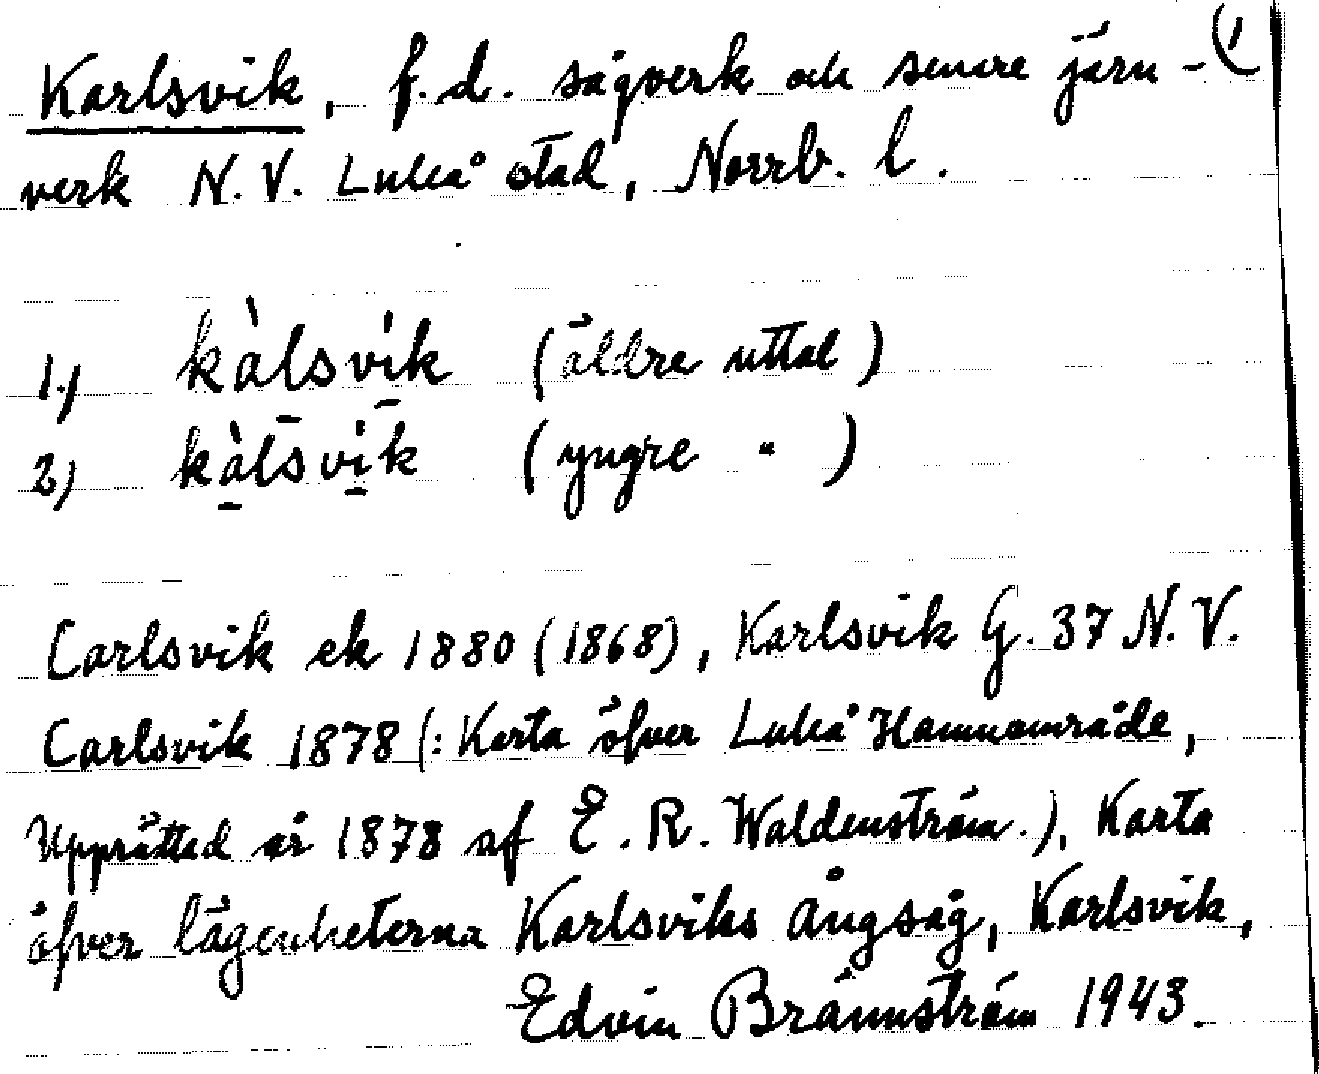 Karlsvik, f.d. sågverk och senare järn- (1
verk N.V. Luleå stad, Norrb. l.
1.) kàlsvi̍k (äldre uttal)
2) kàlsvi̍k (yngre " )
Carlsvik ek 1880 (1868), Karlsvik G. 37 N.V.
Carlsvik 1878 (: Karta öfver Luleå Hamnområde,
Upprättad år 1878 af E. R. Waldenström.), Karta
öfver lägenheterna Karlsviks Ångsåg, Karlsvik,
Edvin Brännström 1943.